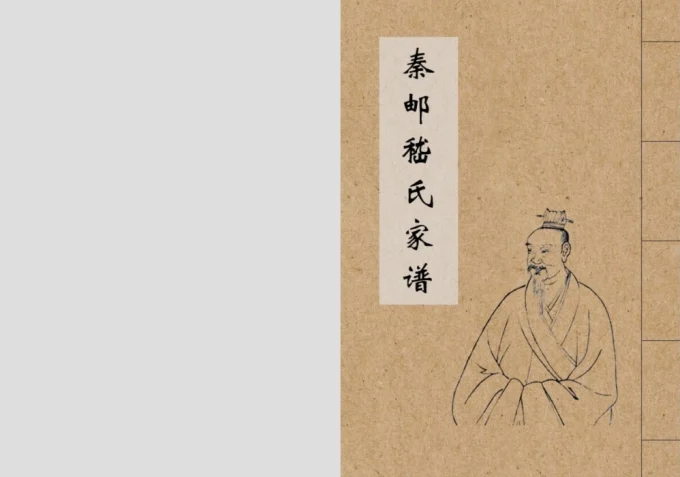 秦邮嵇氏家谱